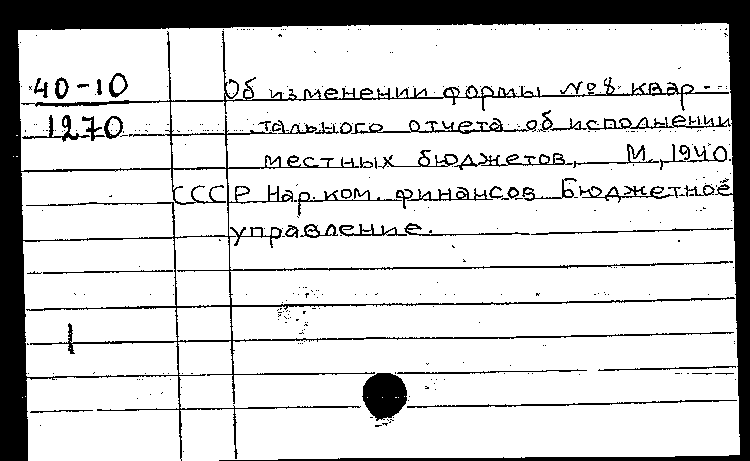 40-10 Об изменении формы №8 квар-
1270 тального отчета об исполнении
местных бюджетов, М., 1940.
СССР Нар. ком. финансов Бюджетное
управление.
1